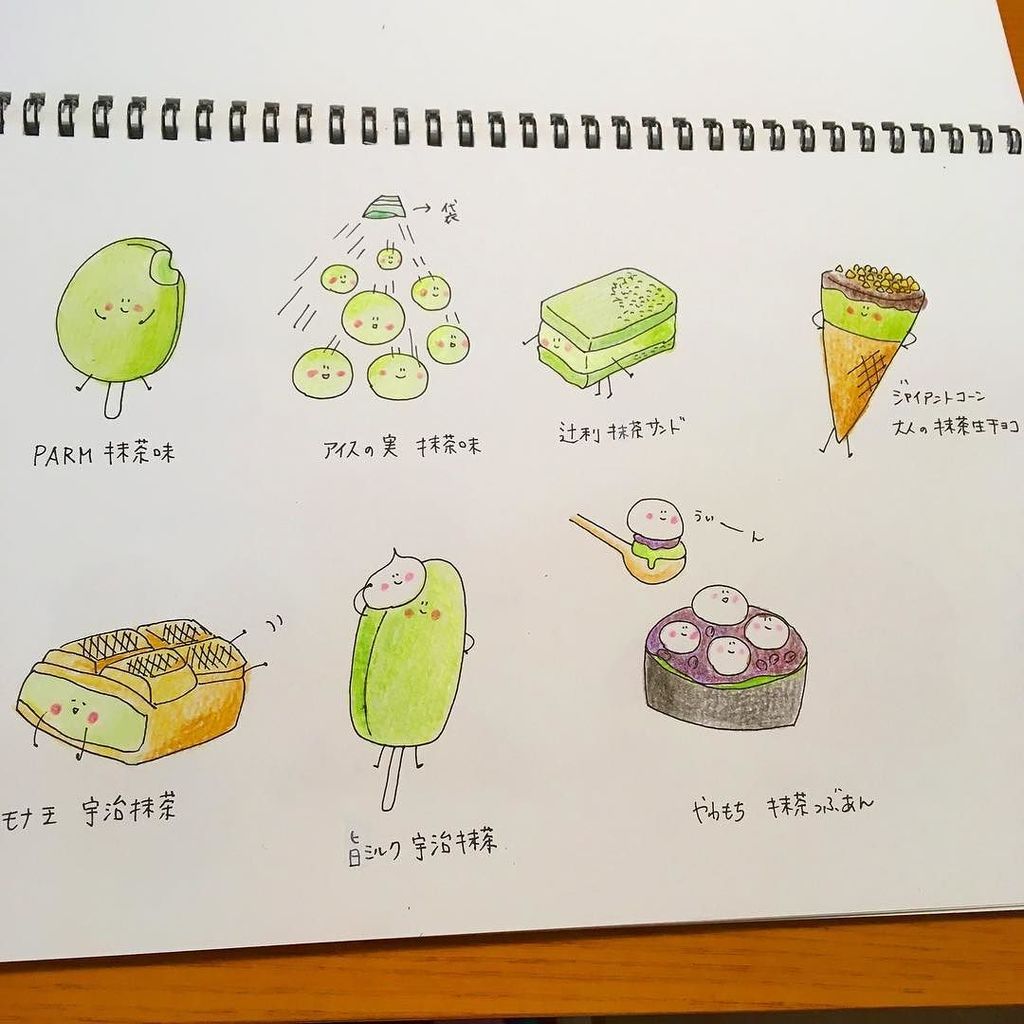 →袋
PARM 抹茶味
アイスの実 抹茶味
辻利 抹茶サンド
ジャイアントコーン
大人の抹茶生チョコ
うぃーん
モナ王 宇治抹茶
旨ミルク 宇治抹茶
やわもち 抹茶つぶあん